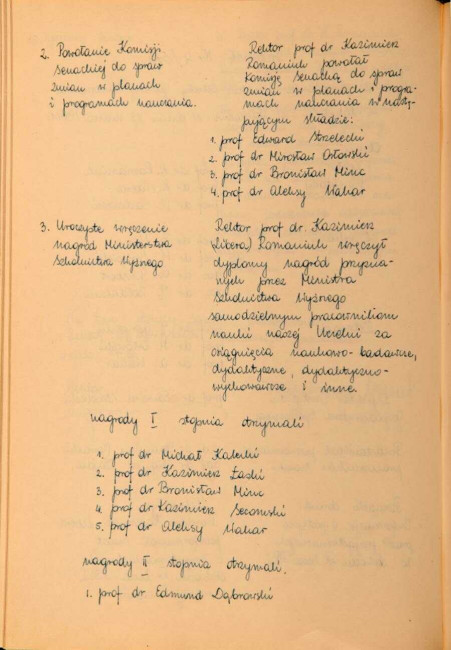 2. Powołanie Komisji
senackiej do spraw
zmian w planach
i programach nauczania.
Rektor prof dr Kazimierz
Romaniuk powołał
Komisję senacką do spraw
zmian w planach i progra-
mach nauczania w nastę-
pującym składzie:
1. prof Edward Strzelecki
2. prof dr Mirosław Orłowski
3. prof dr Bronisław Minc
4. prof dr Aleksy Wakar
3. Uroczyste wręczenie
nagród Ministerstwa
Szkolnictwa Wyższego
Rektor prof dr. Kazimierz
Romaniuk wręczył
dyplomy nagród przyzna-
nych przez Ministra
Szkolnictwa Wyższego
samodzielnym pracownikom
nauki naszej Uczelni za
osiągnięcia naukowo-badawcze,
dydaktyczne, dydaktyczno-
wychowawcze i inne.
nagrody I stopnia otrzymali
1. prof dr Michał Kalecki
2. prof dr Kazimierz Łaski
3. prof dr Bronisław Minc
4. prof dr Kazimierz Secomski
5. prof dr Aleksy Wakar
nagrody II stopnia otrzymali.
1. prof dr Edmund Dąbrowski